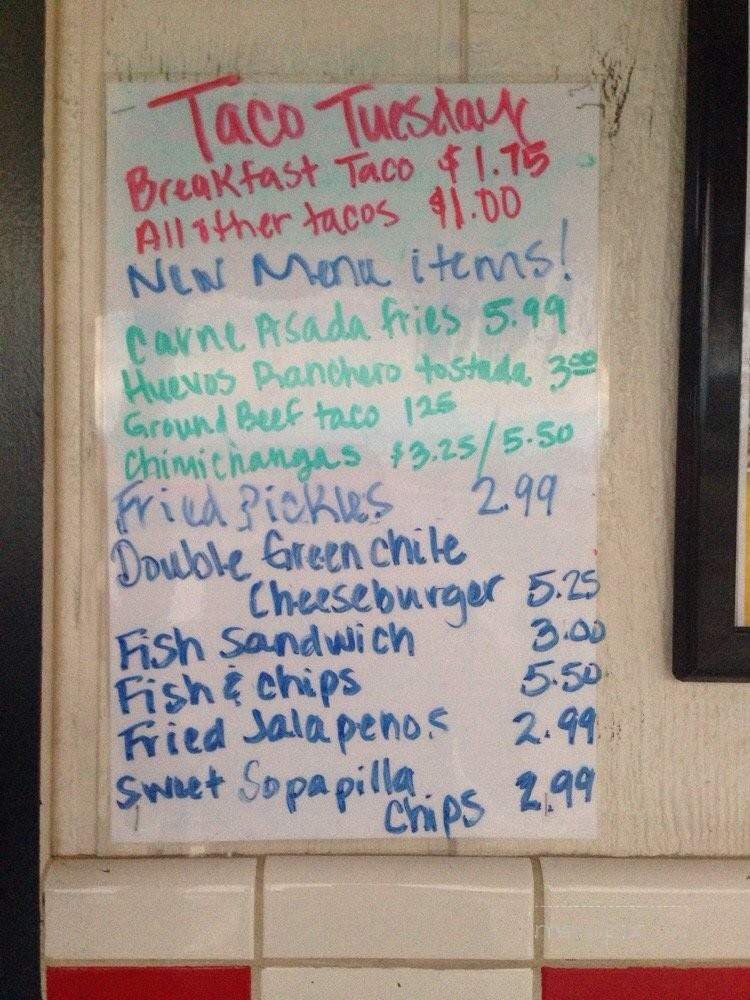 Taco Tuesday
Breakfast Taco $1.75
All other tacos $1.00
New Menu items!
Carne Asada fries 5.99
Huevos Ranchero tostada 3.00
Ground Beef taco 125
Chimichangas $3.25/5.50
Fried Pickles 2.99
Double Green Chile
Cheeseburger 5.25
Fish Sandwich 3.00
Fish & chips 5.50
Fried Jalapenos 2.99
Sweet Sopapilla
Chips 2.99